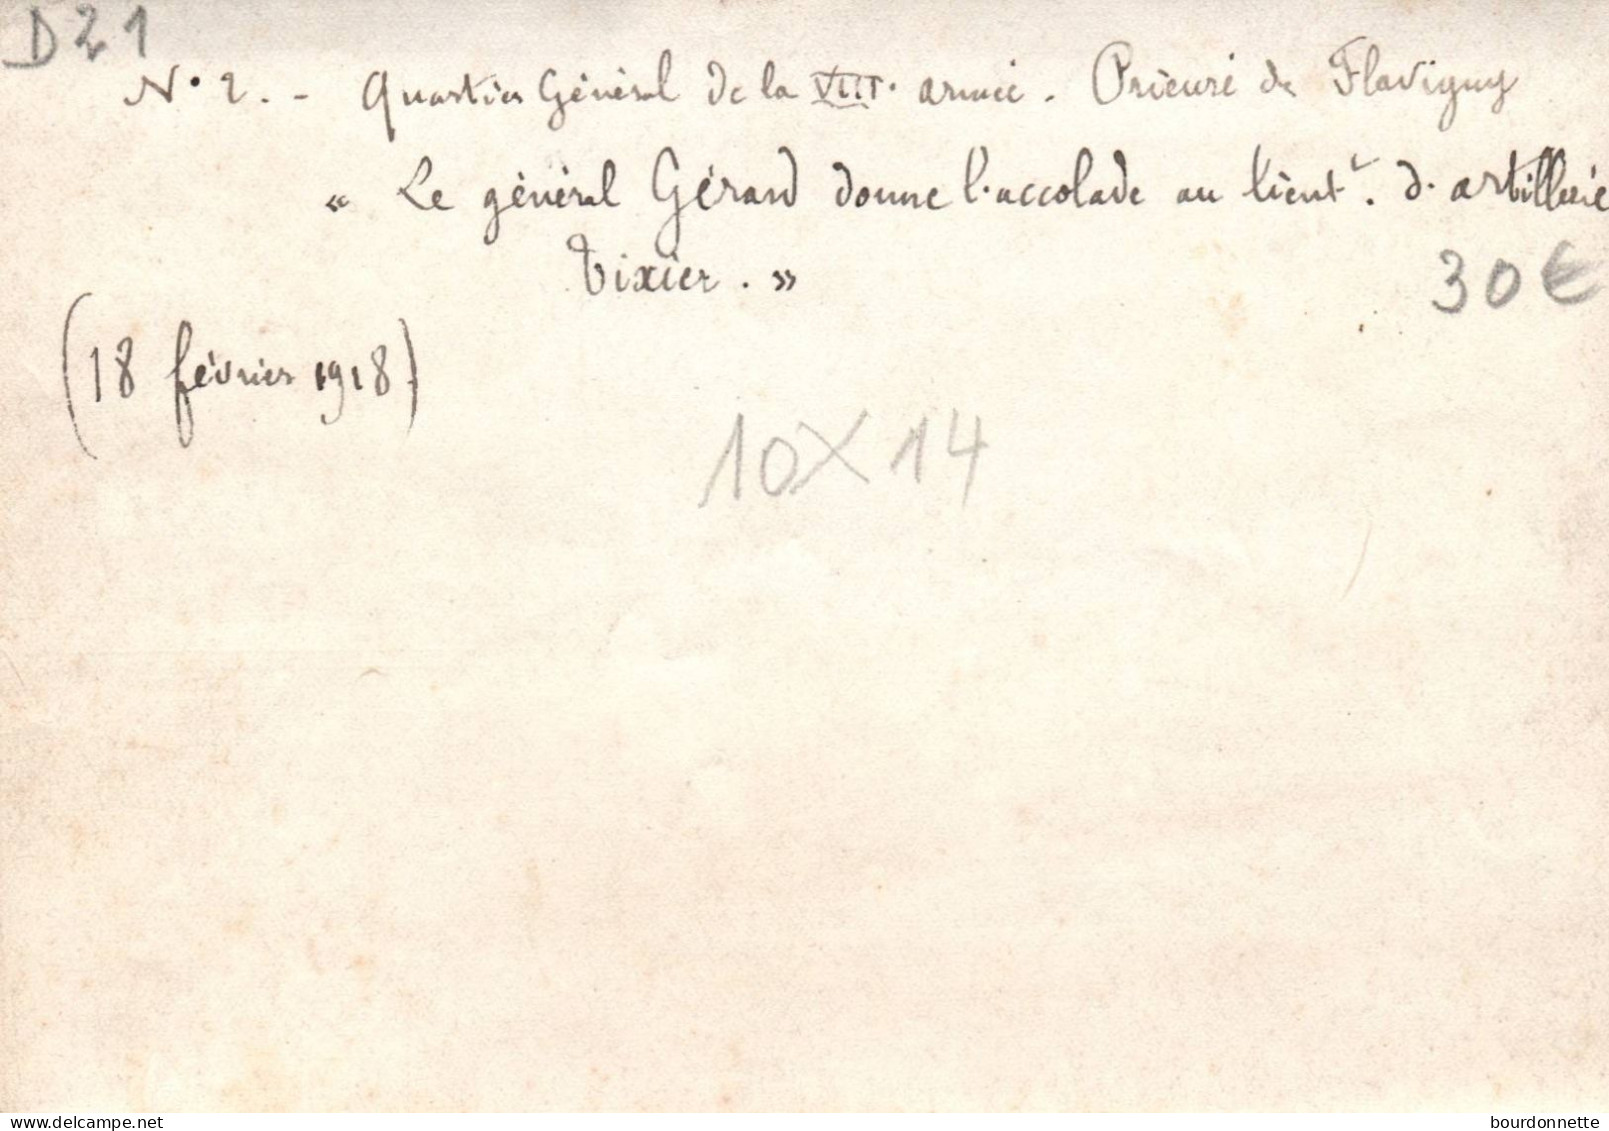 D21
N° 2. - Quartier Général de la VIII. armée. Prieuré de Flavigny
« Le général Gérard donne l'accolade au lieut^t. d'artillerie
Tixier. »
30€
(18 février 1918)
10X14
bourdonnette